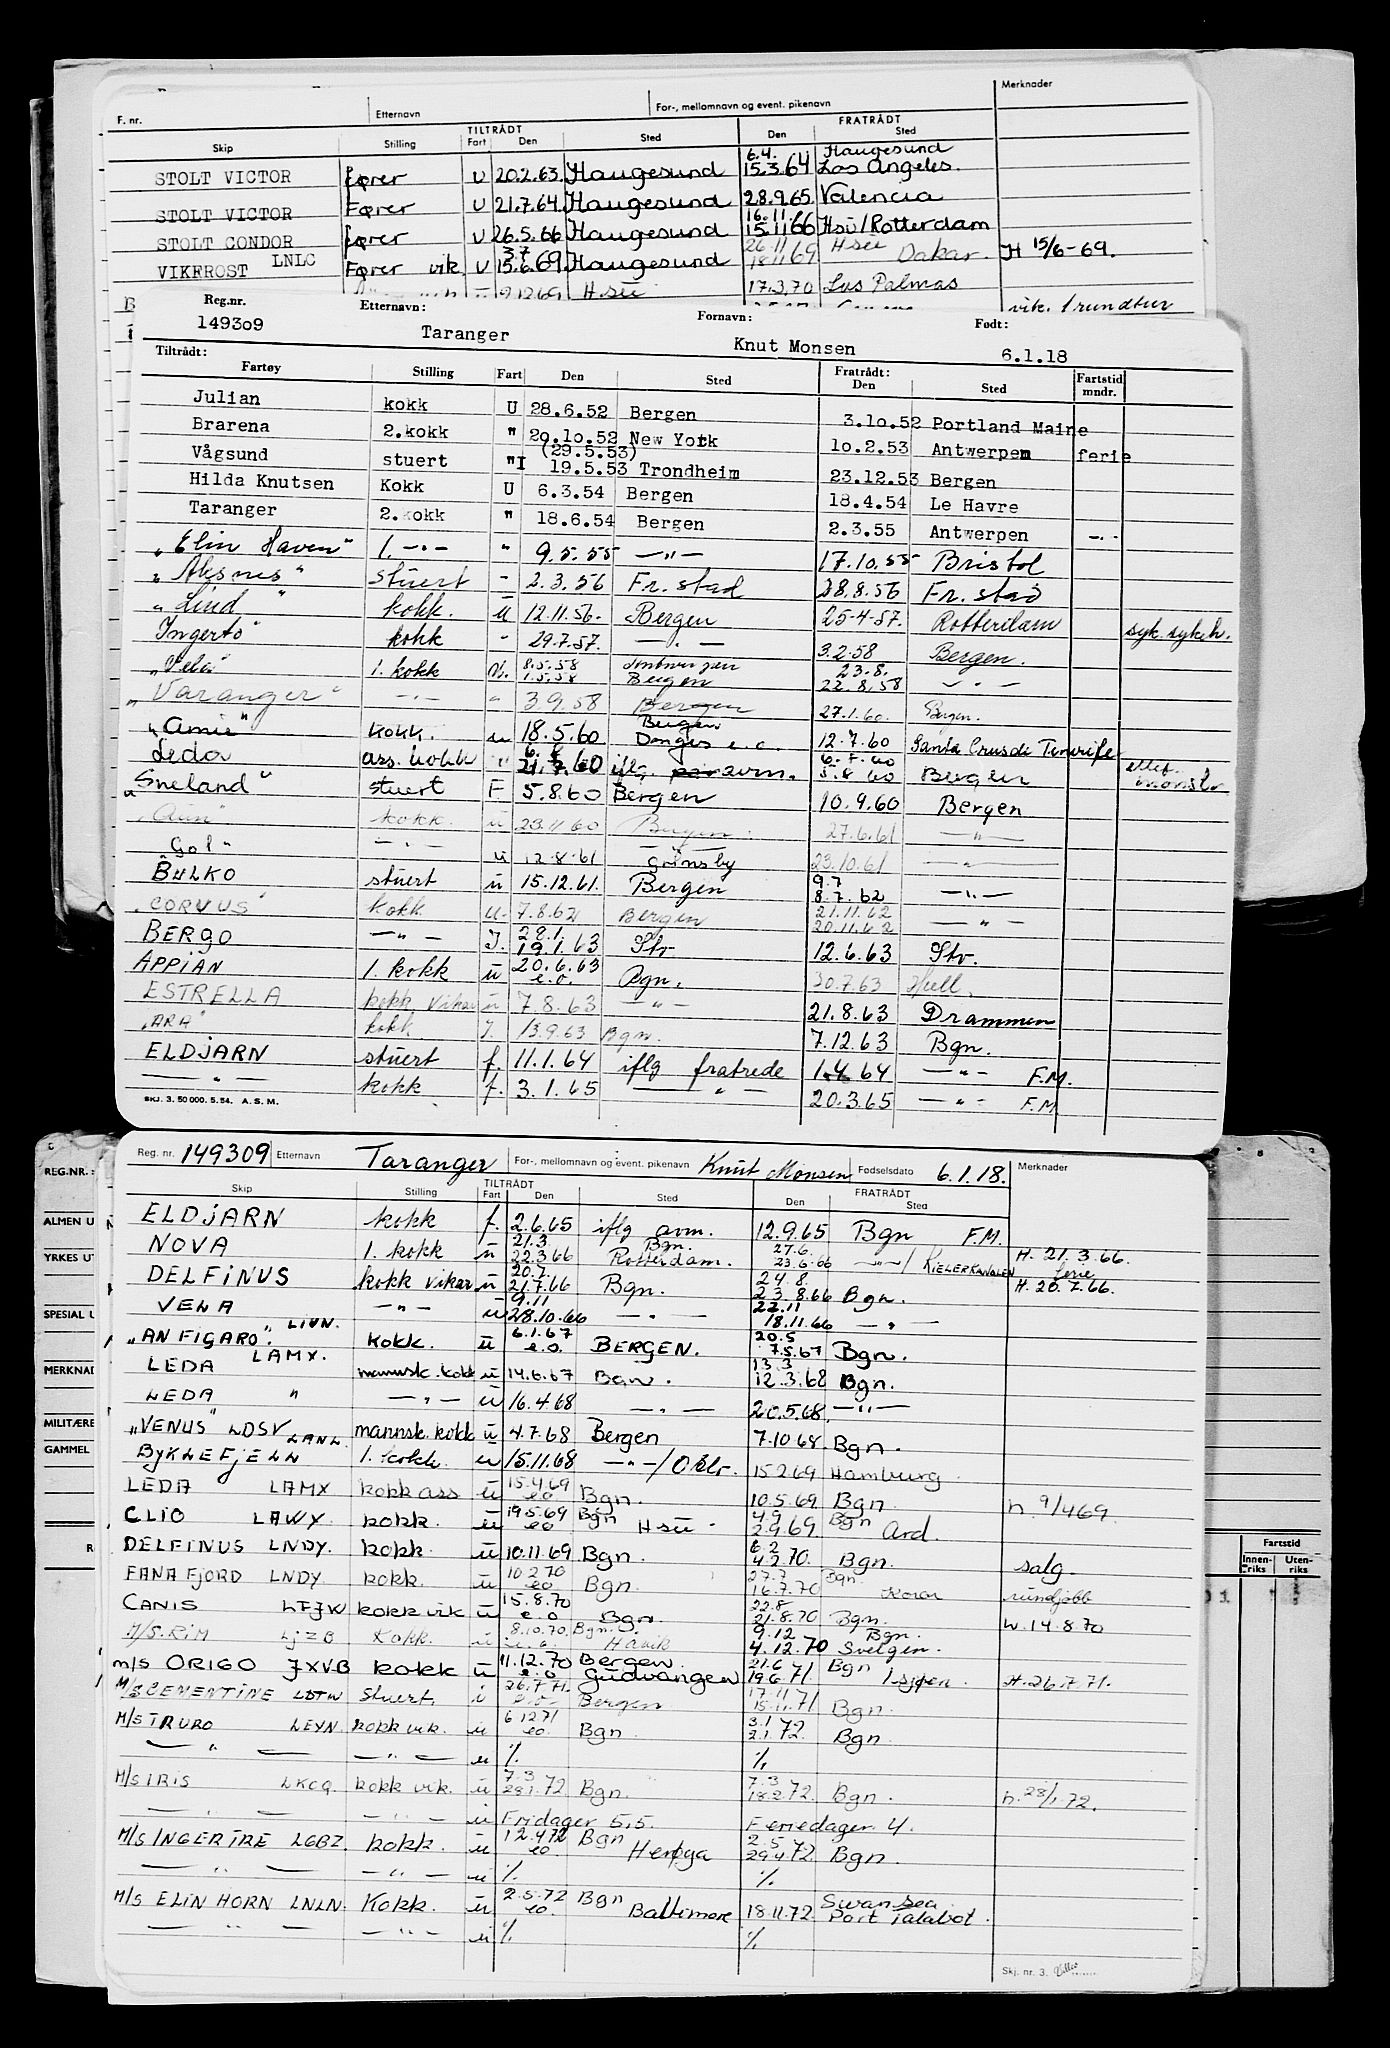 Merknader
F. nr. Etternavn For-, mellomnavn og event. pikenavn
TILTRÅDT FRATRÅDT
Skip Stilling Fart Den Sted Den Sted
6.4. Haugesund
STOLT VICTOR fører U 20.2.63. Haugesund 15.3.64 Los Angeles.
STOLT VICTOR Fører U 21.7.64. Haugesund 28.9.65. Valencia
16.11
STOLT CONDOR fører U 26.5.66 Haugesund 15.11.66 Hsü/Rotterdam
3.7 26.11 Hsü
VIKFROST LNLC Fører vik. U 15.6.69. Haugesund 18.11.69 Dakar. H 15/6-69.
9.12.69 H.sü 17.3.70 Las Palmas
vik. 1 rundtur
Reg.nr. Etternavn: Fornavn: Født:
149309 Taranger Knut Monsen 6.1.18
Tiltrådt: Fratrådt:
Fartøy Stilling Fart Den Sted Den Sted Fartstid mndr.
Julian kokk U 28.6.52 Bergen 3.10.52 Portland Maine
Brarena 2.kokk " 20.10.52 New York 10.2.53 Antwerpen ferie
(29.5.53)
Vågsund stuert "I 19.5.53 Trondheim 23.12.53 Bergen
Hilda Knutsen Kokk U 6.3.54 Bergen 18.4.54 Le Havre
Taranger 2.kokk " 18.6.54 Bergen 2.3.55 Antwerpen -.-
"Elin Haven" 1. -"- " 9.5.55 -"- 17.10.55 Bristol
"Aksnes" stuert - 2.3.56 Fr.stad 28.8.56 Fr.stad
"Lind" kokk. u 12.11.56. Bergen 25-4-57. Rotterdam syk. sykeh.
Ingerto" kokk - 29.7.57. -.- 3.2.58 Bergen.
8.5.58 23.8.
"Vela" 1. kokk 1.5.58 Bergen 22.8.58 -"-
"Varanger" -.- " 3.9.58 Bergen 27.1.60. Bergen.
Bergen
kokk. u 18.5.60 12.7.60 Santa Crus de Tenerife
6.7.60
Leda ass. kokk " 21.7.60 iflg. avm. 5.8.60 Bergen
Sneland" stuert F 5.8.60 Bergen 10.9.60 Bergen
kokk. u 23.11.60 Bergen. 27.6.61 -"-
Gol" -.- u 12.8.61 Grimsby 23.10.61 -"-
9.7
BULKO stuert u 15.12.61. Bergen 8.7.62 -"-
21.11.62
"CORVUS" kokk u. 7.8.62 Bergen 20.11.62 -"-
28.1.
BERGO -"- I. 19.1.63 Stv 12.6.63 Stv.
20.6.63
APPIAN 1. kokk u e.o. Bgn. 30.7.63 Hull.
ESTRELLA kokk vikar u 7.8.63 -"- 21.8.63 Drammen
"ARA" kokk I 13.9.63 Bgn. 7.12.63 Bgn.
ELDJARN stuert f. 11.1.64 iflg fratrede 1.4.64 -"- F.M.
-"- kokk f. 3.1.65 -"- 20.3.65 -"- F.M.
SKJ. 3. 50 000. 5. 54. A. S. M.
REG.NR.:
ALMEN U
YRKES UT
SPESIAL U
MERKNAD
MILITÆRE
GAMMEL
Reg. nr. 149309 Etternavn Taranger For-, mellomnavn og event. pikenavn Knut Monsen Fødselsdato 6.1.18. Merknader
TILTRÅDT FRATRÅDT
Skip Stilling Fart Den Sted Den Sted
ELDJARN kokk f. 2.6.65 iflg avm. 12.9.65 Bgn F.M.
21.3 Bgn. 27.6.
NOVA 1. kokk u 22.3.66 Rotterdam. 23.6.66 -"-/ KIELERKANALEN H. 21.3.66. ferie
20.7. 24.8.
DELFINUS kokk vikar u 21.7.66 Bgn. 23.8.66 Bgn. H. 20.7.66.
9.11 22.11
VELA -"- u 28.10.66 -"- 18.11.66 -"-
6.1.67 20.5
"AN FIGARO". kokk. u e.o. BERGEN. 7.5.67 Bgn.
13.3
LEDA LAMX. mannsk. kokk u 14.6.67 Bgn. 12.3.68 Bgn.
LEDA " -"- u 16.4.68 -"- 20.5.68. -"-
"VENUS" LDSV mannsk. kokk u 4.7.68 Bergen 7.10.68. Bgn.
BYKLEFJELL LANL. 1. kokk. u 15.11.68 -"-/ 15.2.69 Hamburg.
15.4.69
LEDA LAMX kokk ass u e.o Bgn. 10.5.69 Bgn. h. 9/4 69.
19.5.69 Bgn 4.9 Bgn
CLIO LAWY. kokk. u eo Hsü - 2.9.69. Ard.
6.2
DELFINUS LNDY. kokk. u 10.11.69 Bgn. 4.2.70. Bgn. salg.
10.2.70 27.7 Bgn
FANAFJORD LNDY. kokk. u eo Bgn. 16.7.70 rundjobb
15.8.70 22.8
CANIS LFJW kokk vik u e.o Bgn. 21.8.70 Bgn. h. 14.8.70
8.10.70. Bgn. 9.12 Bgn.
M/S. RIM LJZB Kokk. u e.o. Havik 4.12.70 Svelgen.
11.12.70 Bergen 21.6 Bgn
m/s ORIGO JXVB kokk u e.o Gudvangen 19.6.71 1 sjøen. H. 26.7.71.
26.7.71. 17.11
M/S CEMENTINE LDTW Stuert. u e.o. Bergen 15.11.71 Bgn.
6.12.71 3.1
M/S TRURO LEYN. kokk vik. u eo. Bgn 2.1.72. Bgn
-"- -"- u % %
7.3 7.3
M/S IRIS LKCQ. kokk vik. u 28.1.72 Bgn. 18.2.72. Bgn. h. 28/1.72.
-"- -"- u Fridager 5,5. Feriedager. 4.
12.4.72 Bgn 2.5
M/S INGERTRE LGBZ. kokk. u eo Herøya 29.4.72 Bgn.
-"- -"- u % %
2.5.72 Bgn Swansea
M/S ELIN HORN LNLN. Kokk. u eo. Baltimore 18.11.72. Port Talabot.
-"- -"- u % %
Skj. nr. 3.
Fartstid
Innenriks Utenriks